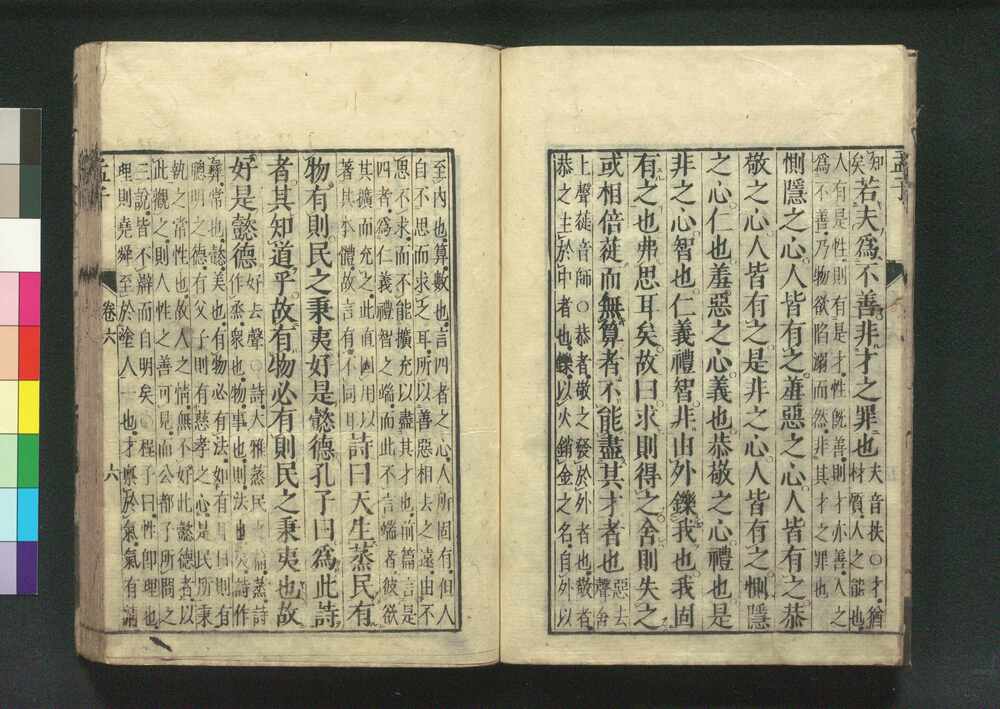 孟子
知
矣
若夫為不善非才之罪也
夫音扶○才猶
材質人之能也
人有是性則有是才性既善則才亦善人之
為不善乃物欲陷溺而然非其才之罪也
惻隱之心人皆有之羞惡之心人皆有之恭
敬之心人皆有之是非之心人皆有之惻隱
之心仁也羞惡之心義也恭敬之心禮也是
非之心智也仁義禮智非由外鑠我也我固
有之也弗思耳矣故曰求則得之舍則失之
或相倍蓰而無算者不能盡其才者也
惡去
聲舍
上聲蓰音師○恭者敬之發於外者也敬者
恭之主於中者也鑠以火銷金之名自外以
至內也算數也言四者之心人所固有但人
自不思而求之耳所以善惡相去之遠由不
思不求而不能擴充以盡其才也前篇言是
四者為仁義禮智之端而此不言端者彼欲
其擴而充之此直因用以
著其本體故言有不同耳
詩曰天生蒸民有
物有則民之秉夷好是懿德孔子曰為此詩
者其知道乎故有物必有則民之秉夷也故
好是懿德
好去聲○詩大雅蒸民之篇蒸詩
作烝衆也物事也則法也夷詩作
彝常也懿美也有物必有法如有耳目則有
聰明之德有父子則有慈孝之心是民所秉
執之常性也故人之情無不好此懿德者以
此觀之則人性之善可見而公都子所問之
三說皆不辯而自明矣○程子曰性即理也
理則堯舜至於塗人一也才禀於氣氣有清
孟子
卷六
六